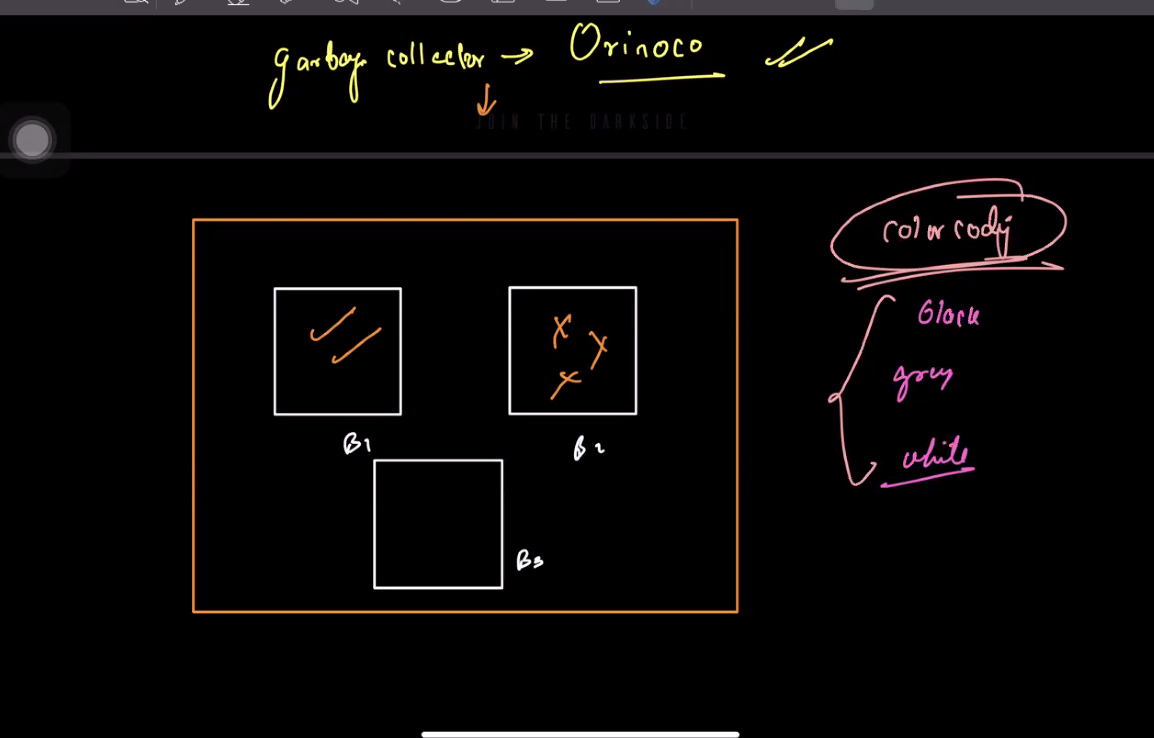 garbage collector → Orinoco
JOIN THE DARKSIDE
color coding
black
grey
white
B1
B2
B3